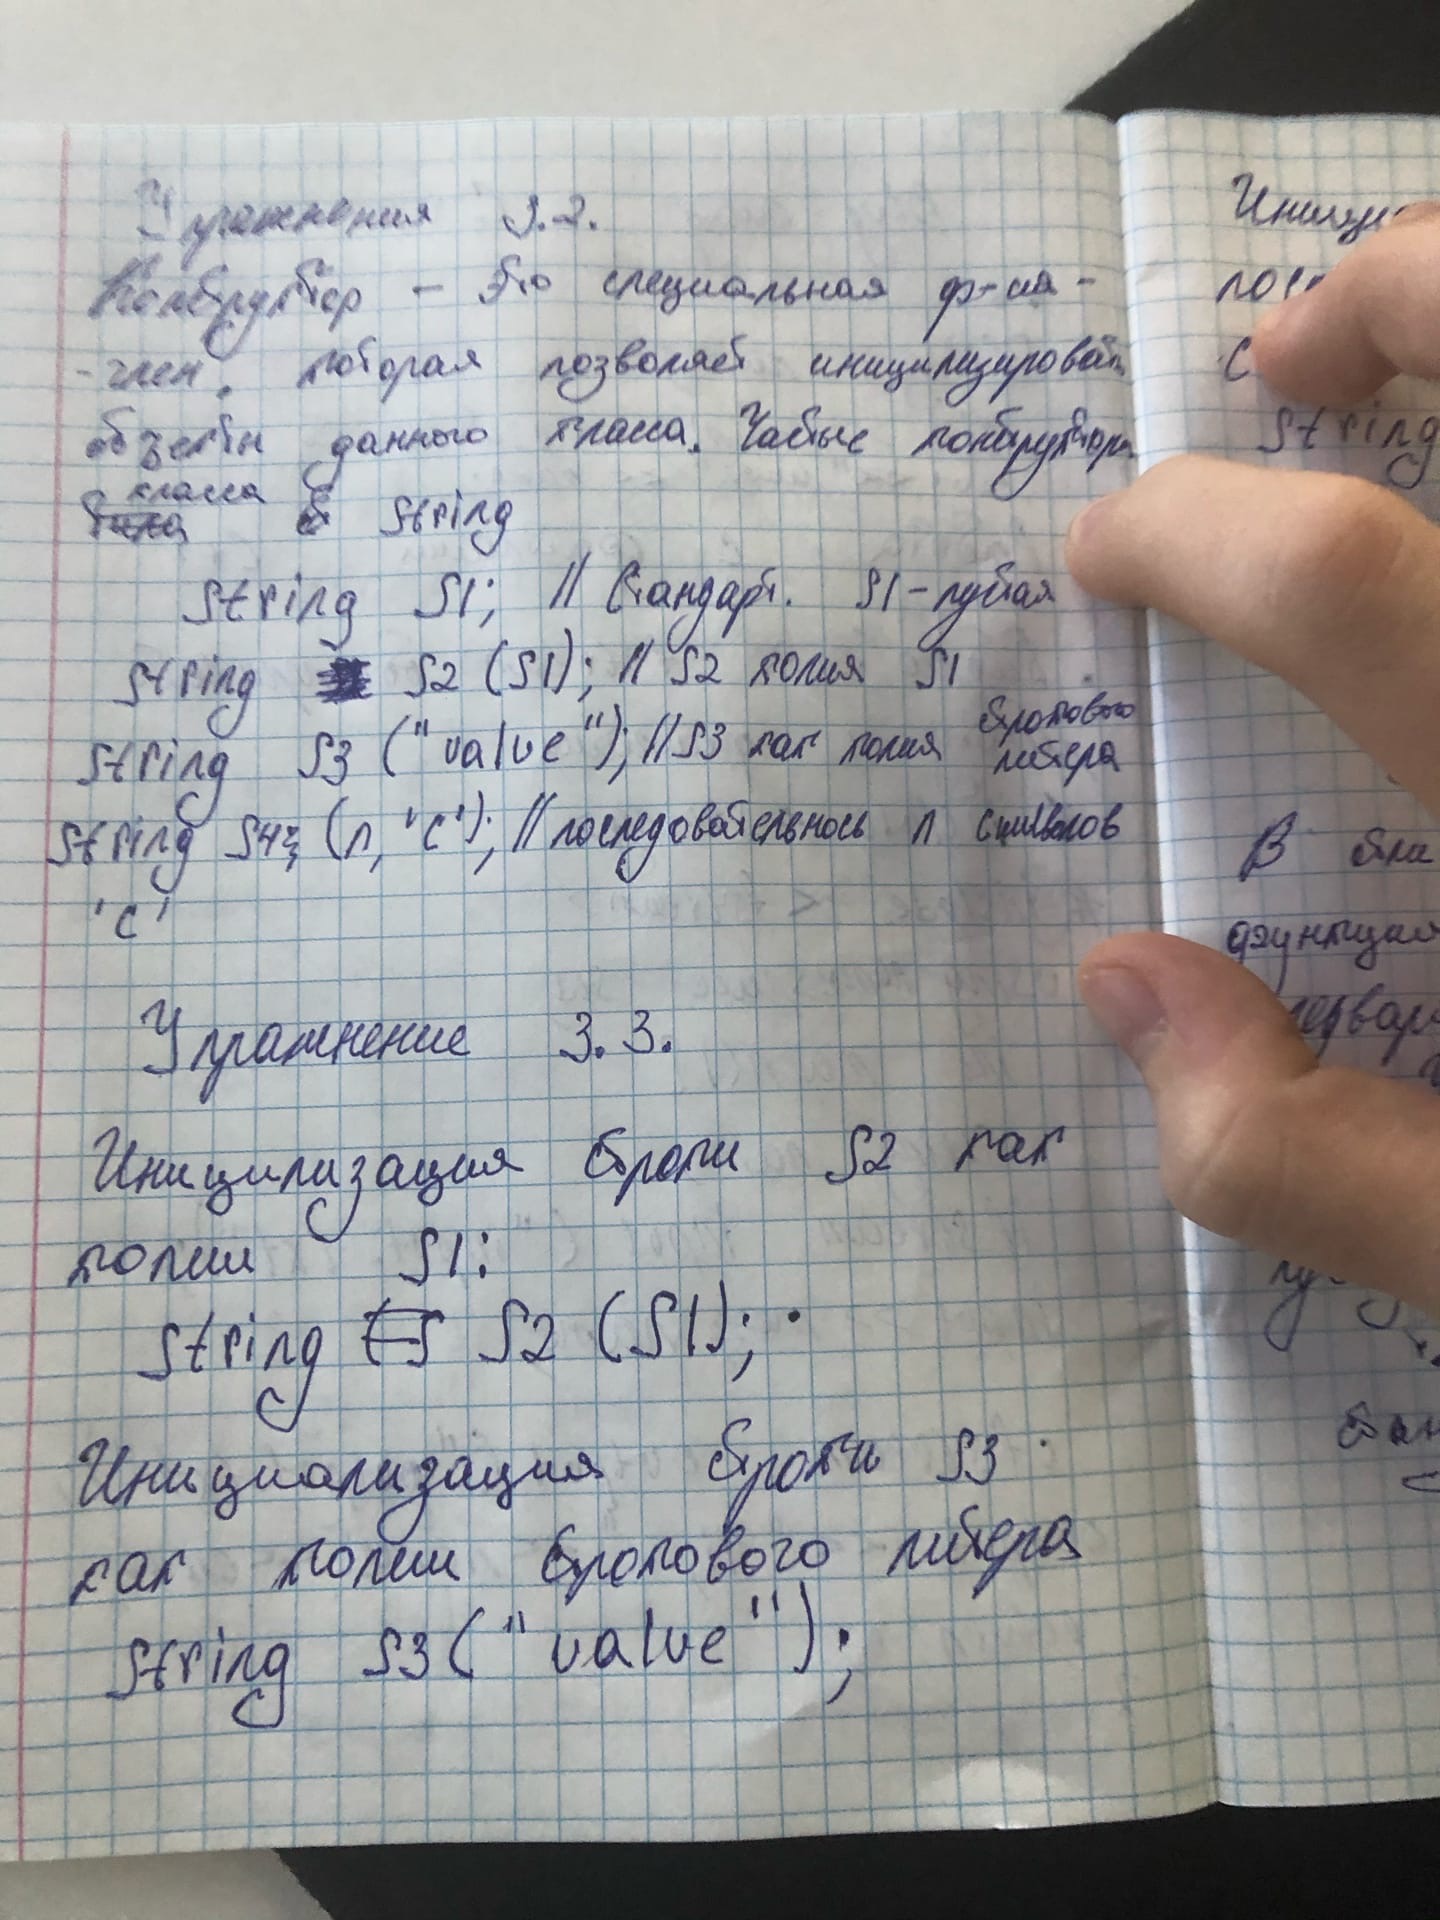 Упражнения 3.2.
Конструктор - это специальная ф-ия-
-член, которая позволяет иницилизировать
объекты данного класса. Частые конструктора
класса string
string S1; // Стандарт. S1-пустая
string S2 (S1); // S2 копия S1
string S3 ("value"); // S3 как копия строкового литера
string S4 (n, 'c'); // последовательнось n символов
'c'
Упражнение 3.3.
Иницилизация строки S2 как
копии S1:
string S2 (S1);
Инициализация строки S3
как копии строкового литера
string S3 ("value");
string
В